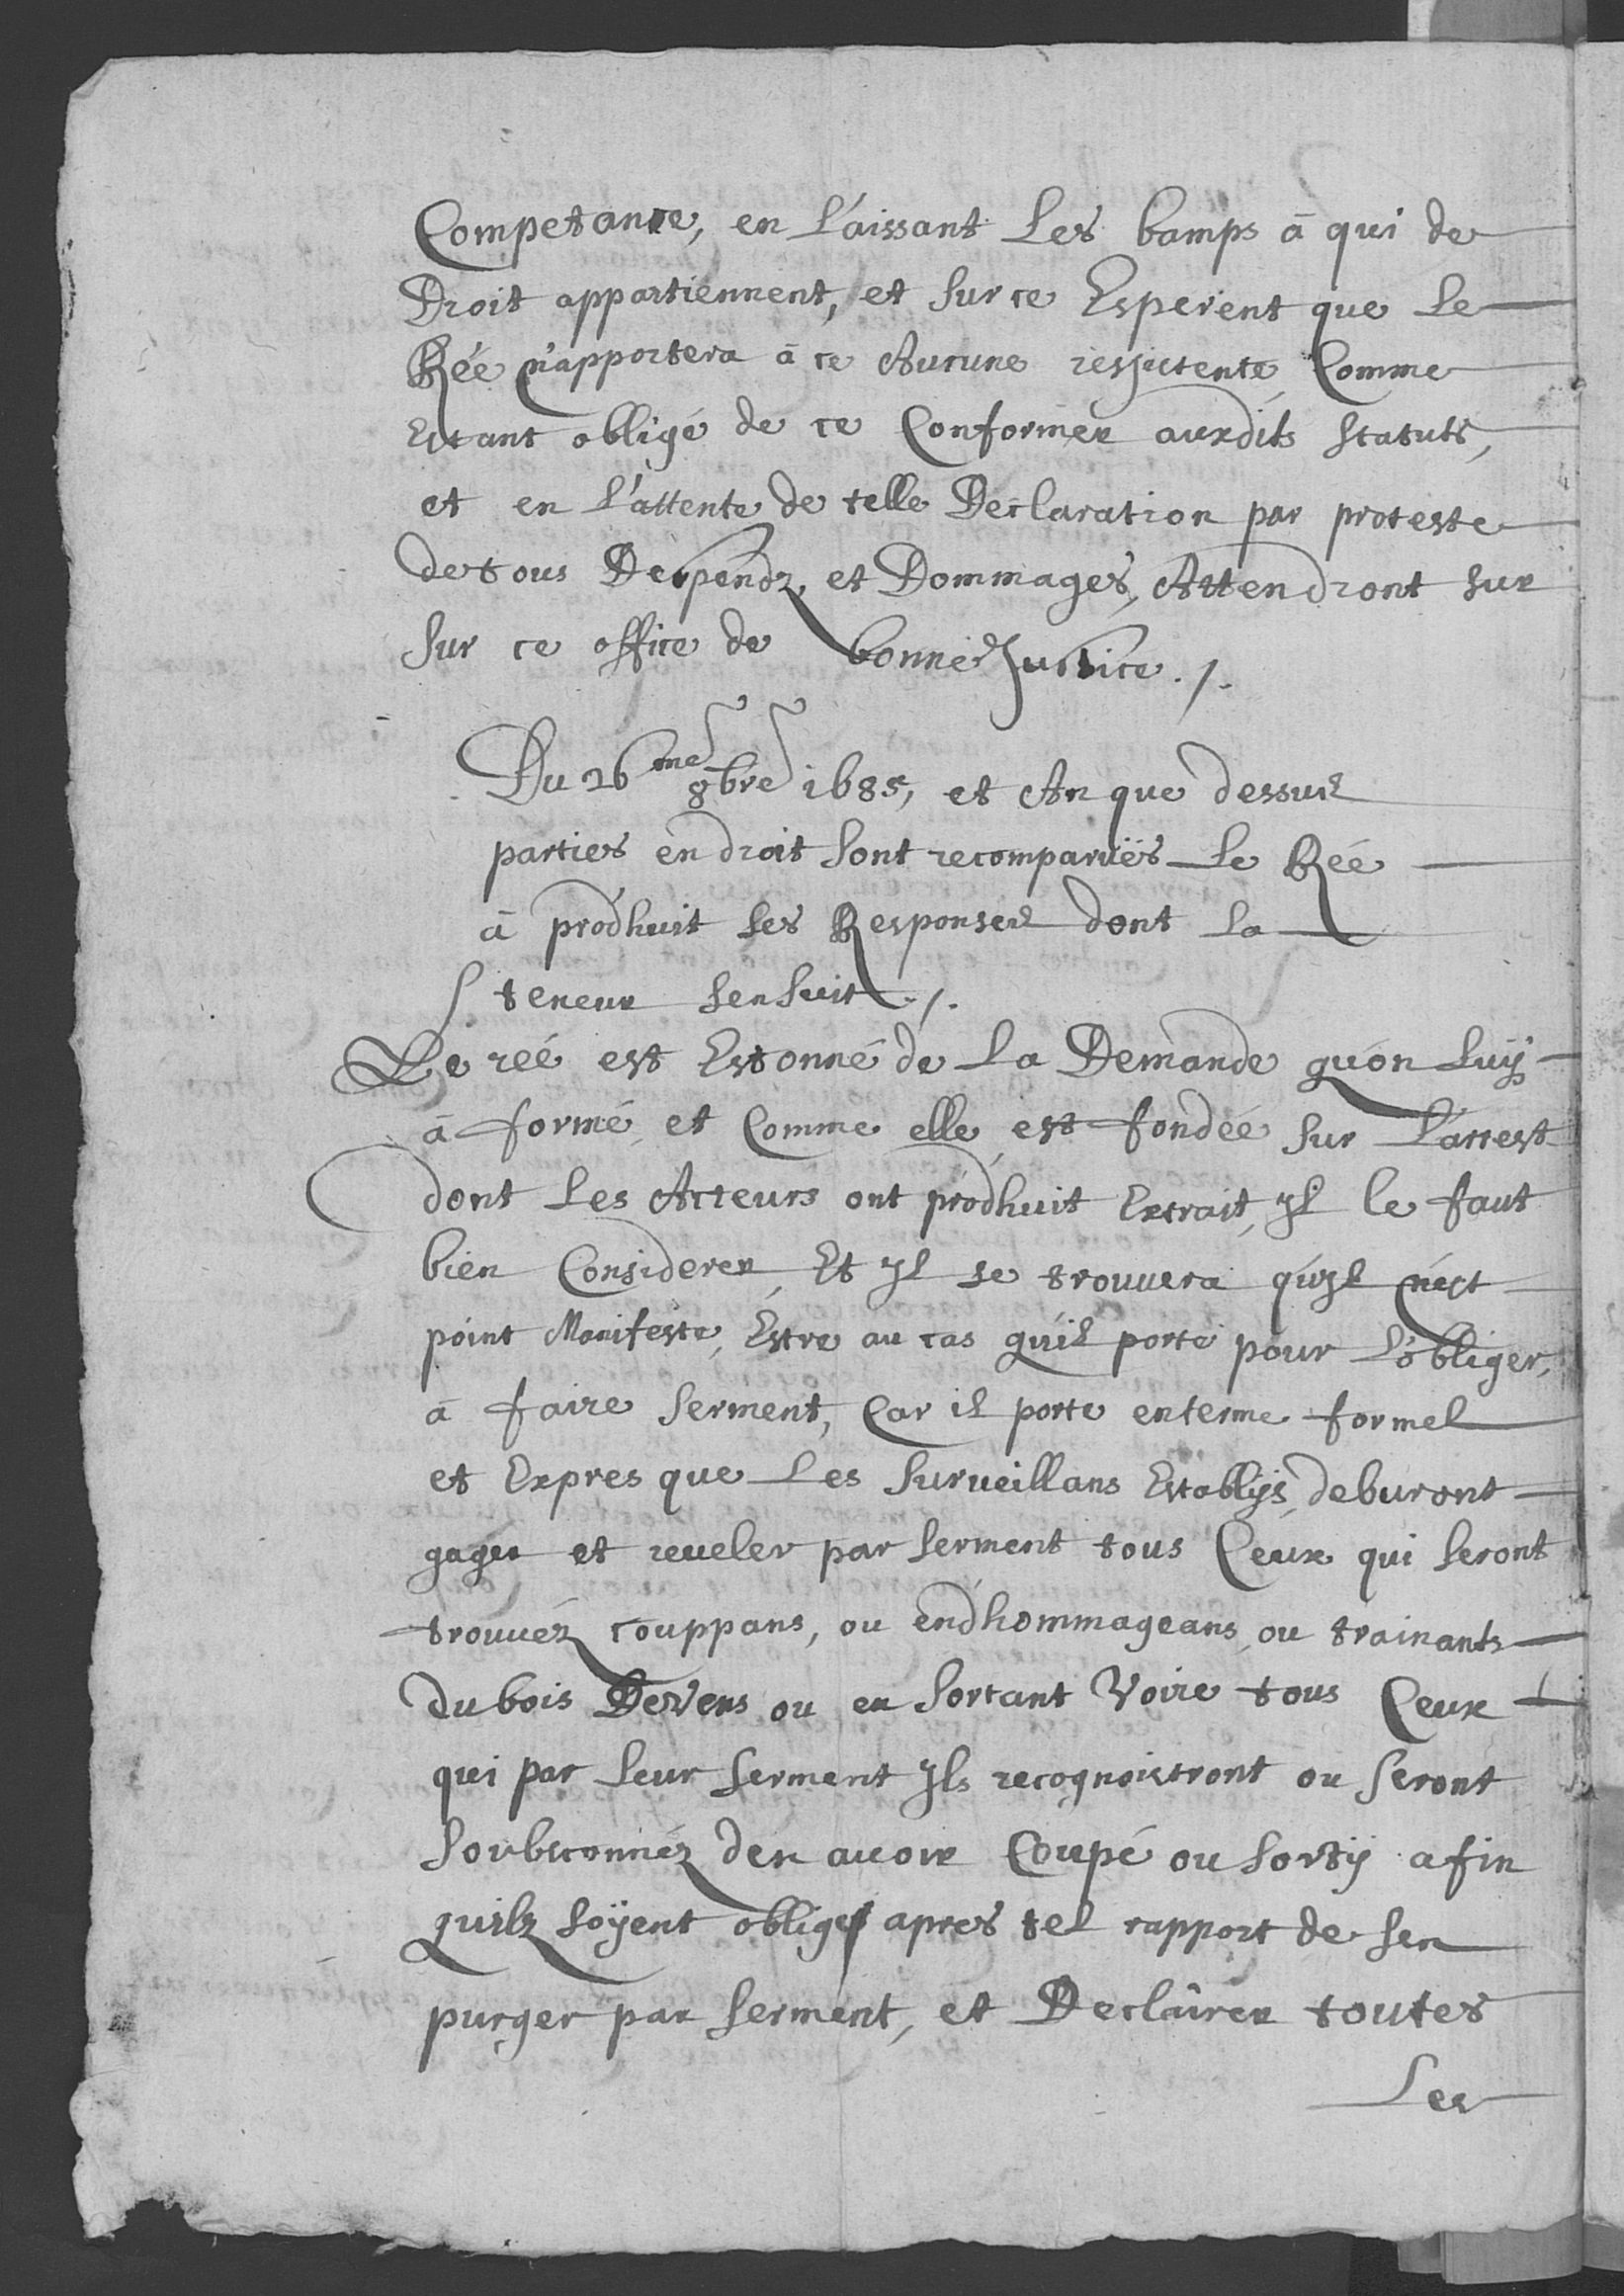 Competance, en L'aissant Les bamps â qui de
Droit appartiennent, et Sur ce Esperent que Le
Rée n'apportera â ce Aucune ressistente Comme
Estant obligé de ce Conformer auxdits Statuts,
et en L'attente de telle Declaration par proteste
de tous Despendz, et Dommages, Attendront sur
Sur ce office de bonne Justice ./.
Du 26me 8bre 1685, et An que dessus
parties en droit Sont recomparuës Le Rée
â prodhuit Ses Responses dont La
teneur Sen Suit ./.
Le reé est Estonné de La Demande qu'on Luÿ
â formé, et Comme elle est fondée Sur L'arrest
dont Les Acteurs ont prodhuit Extrait, Jl le faut
bien Considerer, Et Jl se trouvera qu'Jl n'est
point Manifeste, Estre au cas qu'il porte pour L'obliger,
â faire Serment, Car il porte en terme formel
et Expres que Les Surveillans Establÿs deburont
gager et reveler par Serment tous Ceux qui Seront
trouvéz couppans, ou endhommageans ou trainants
du bois Devens ou en Sortant Voire tous Ceux
qui par Leur Serment Jls recognoistront ou Seront
Soubsconnéz den avoir Coupé ou Sortÿ afin
quilz Soÿent obliges apres tel rapport de Sen
purger par Serment, et Declairer toutes
Les